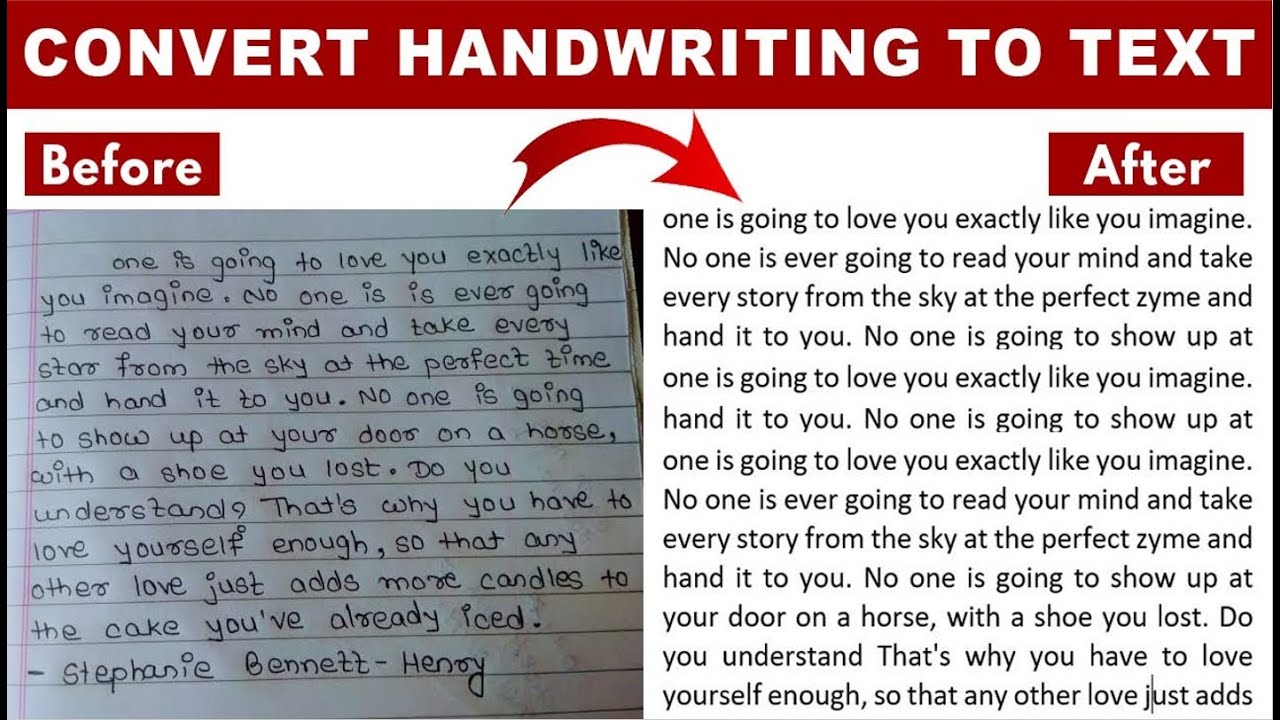 CONVERT HANDWRITING TO TEXT
Before
After
one is going to love you exactly like
you imagine. No one is is ever going
to read your mind and take every
star from the sky at the perfect time
and hand it to you. No one is going
to show up at your door on a horse,
with a shoe you lost. Do you
understand? That's why you have to
love yourself enough, so that any
other love just adds more candles to
the cake you've already iced.
- Stephanie Bennett-Henry
one is going to love you exactly like you imagine.
No one is ever going to read your mind and take
every story from the sky at the perfect zyme and
hand it to you. No one is going to show up at
one is going to love you exactly like you imagine.
hand it to you. No one is going to show up at
one is going to love you exactly like you imagine.
No one is ever going to read your mind and take
every story from the sky at the perfect zyme and
hand it to you. No one is going to show up at
your door on a horse, with a shoe you lost. Do
you understand That's why you have to love
yourself enough, so that any other love just adds